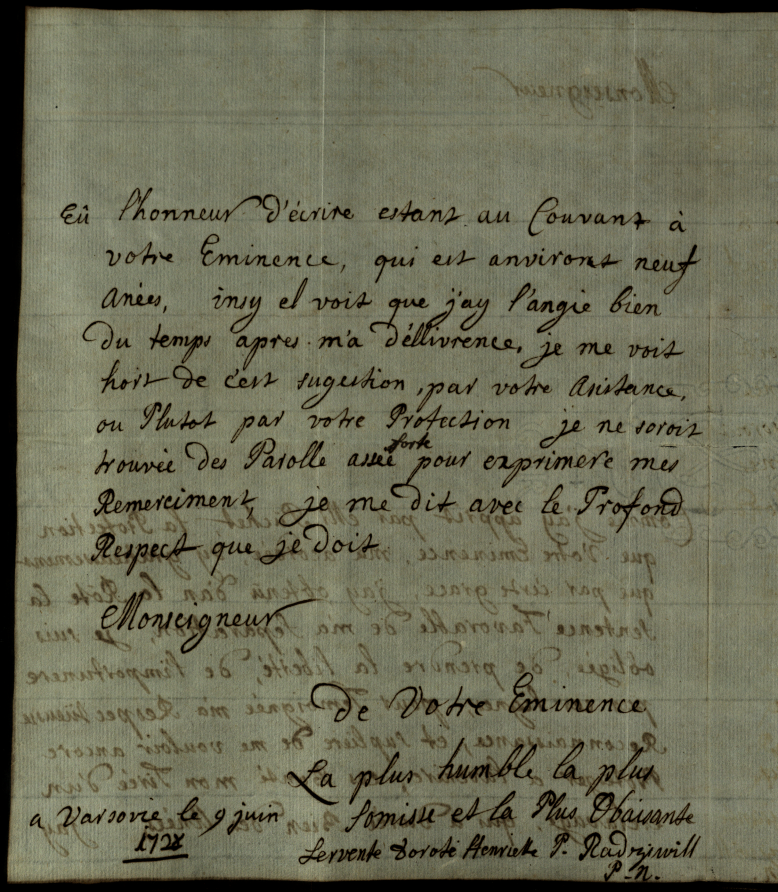 Eû l'honneur D'écrire estant au Couvant à
votre Eminence, qui est anviront neuf
Anées, insy el voit que j'ay l'angie bien
Du temps apres m'a Déllivrence, je me voit
hort de c'est sugestion, par votre Asistance,
ou Plutot par votre Protection je ne soroit
trouvée des Parolle assée forte pour exprimere mes
Remerciment, je me dit avec le Profond
Respect que je Doit
Monseigneur
De Votre Eminence
La plus humble la plus
Somisse et la Plus Obaisante
Servente Doroté Henriette P. Radziwill
P-n.
a Varsovie le 9 juin